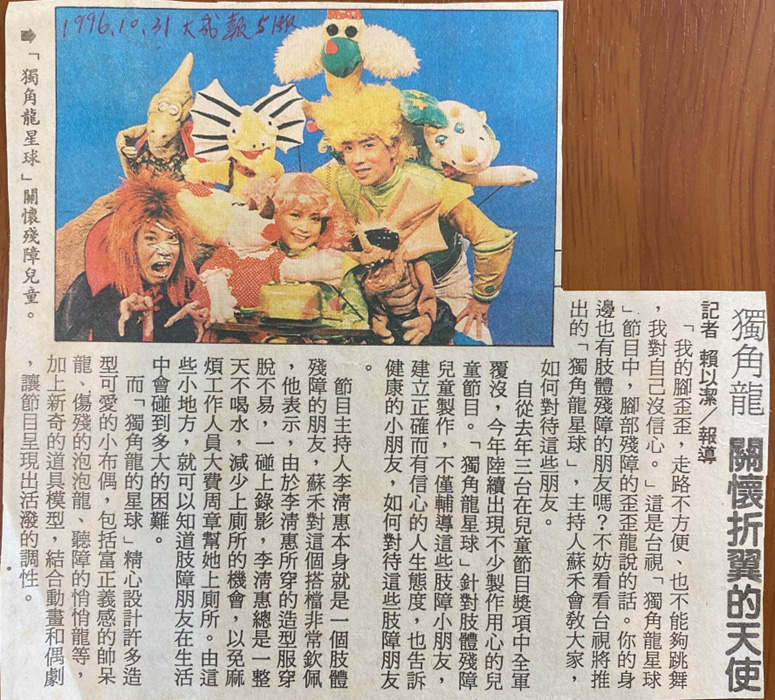 1996.10.31 大成報 51版
➡「獨角龍星球」關懷殘障兒童。
獨角龍 關懷折翼的天使
記者 賴以潔／報導
「我的腳歪歪，走路不方便、也不能夠跳舞
，我對自己沒信心。」這是台視「獨角龍星球
」節目中，腳部殘障的歪歪龍說的話。你的身
邊也有肢體殘障的朋友嗎？不妨看看台視將推
出的「獨角龍星球」，主持人蘇禾會教大家，
如何對待這些朋友。
自從去年三台在兒童節目獎項中全軍
覆沒，今年陸續出現不少製作用心的兒
童節目。「獨角龍星球」針對肢體殘障
兒童製作，不僅輔導這些肢障小朋友，
建立正確而有信心的人生態度，也告訴
健康的小朋友，如何對待這些肢障朋友
。
節目主持人李淸惠本身就是一個肢體
殘障的朋友，蘇禾對這個搭檔非常欽佩
，他表示，由於李淸惠所穿的造型服穿
脫不易，一碰上錄影，李淸惠總是一整
天不喝水，減少上廁所的機會，以免麻
煩工作人員大費周章幫她上廁所。由這
些小地方，就可以知道肢障朋友在生活
中會碰到多大的困難。
而「獨角龍的星球」精心設計許多造
型可愛的小布偶，包括富正義感的帥呆
龍、傷殘的泡泡龍、聽障的悄悄龍等，
加上新奇的道具模型，結合動畫和偶劇
，讓節目呈現出活潑的調性。